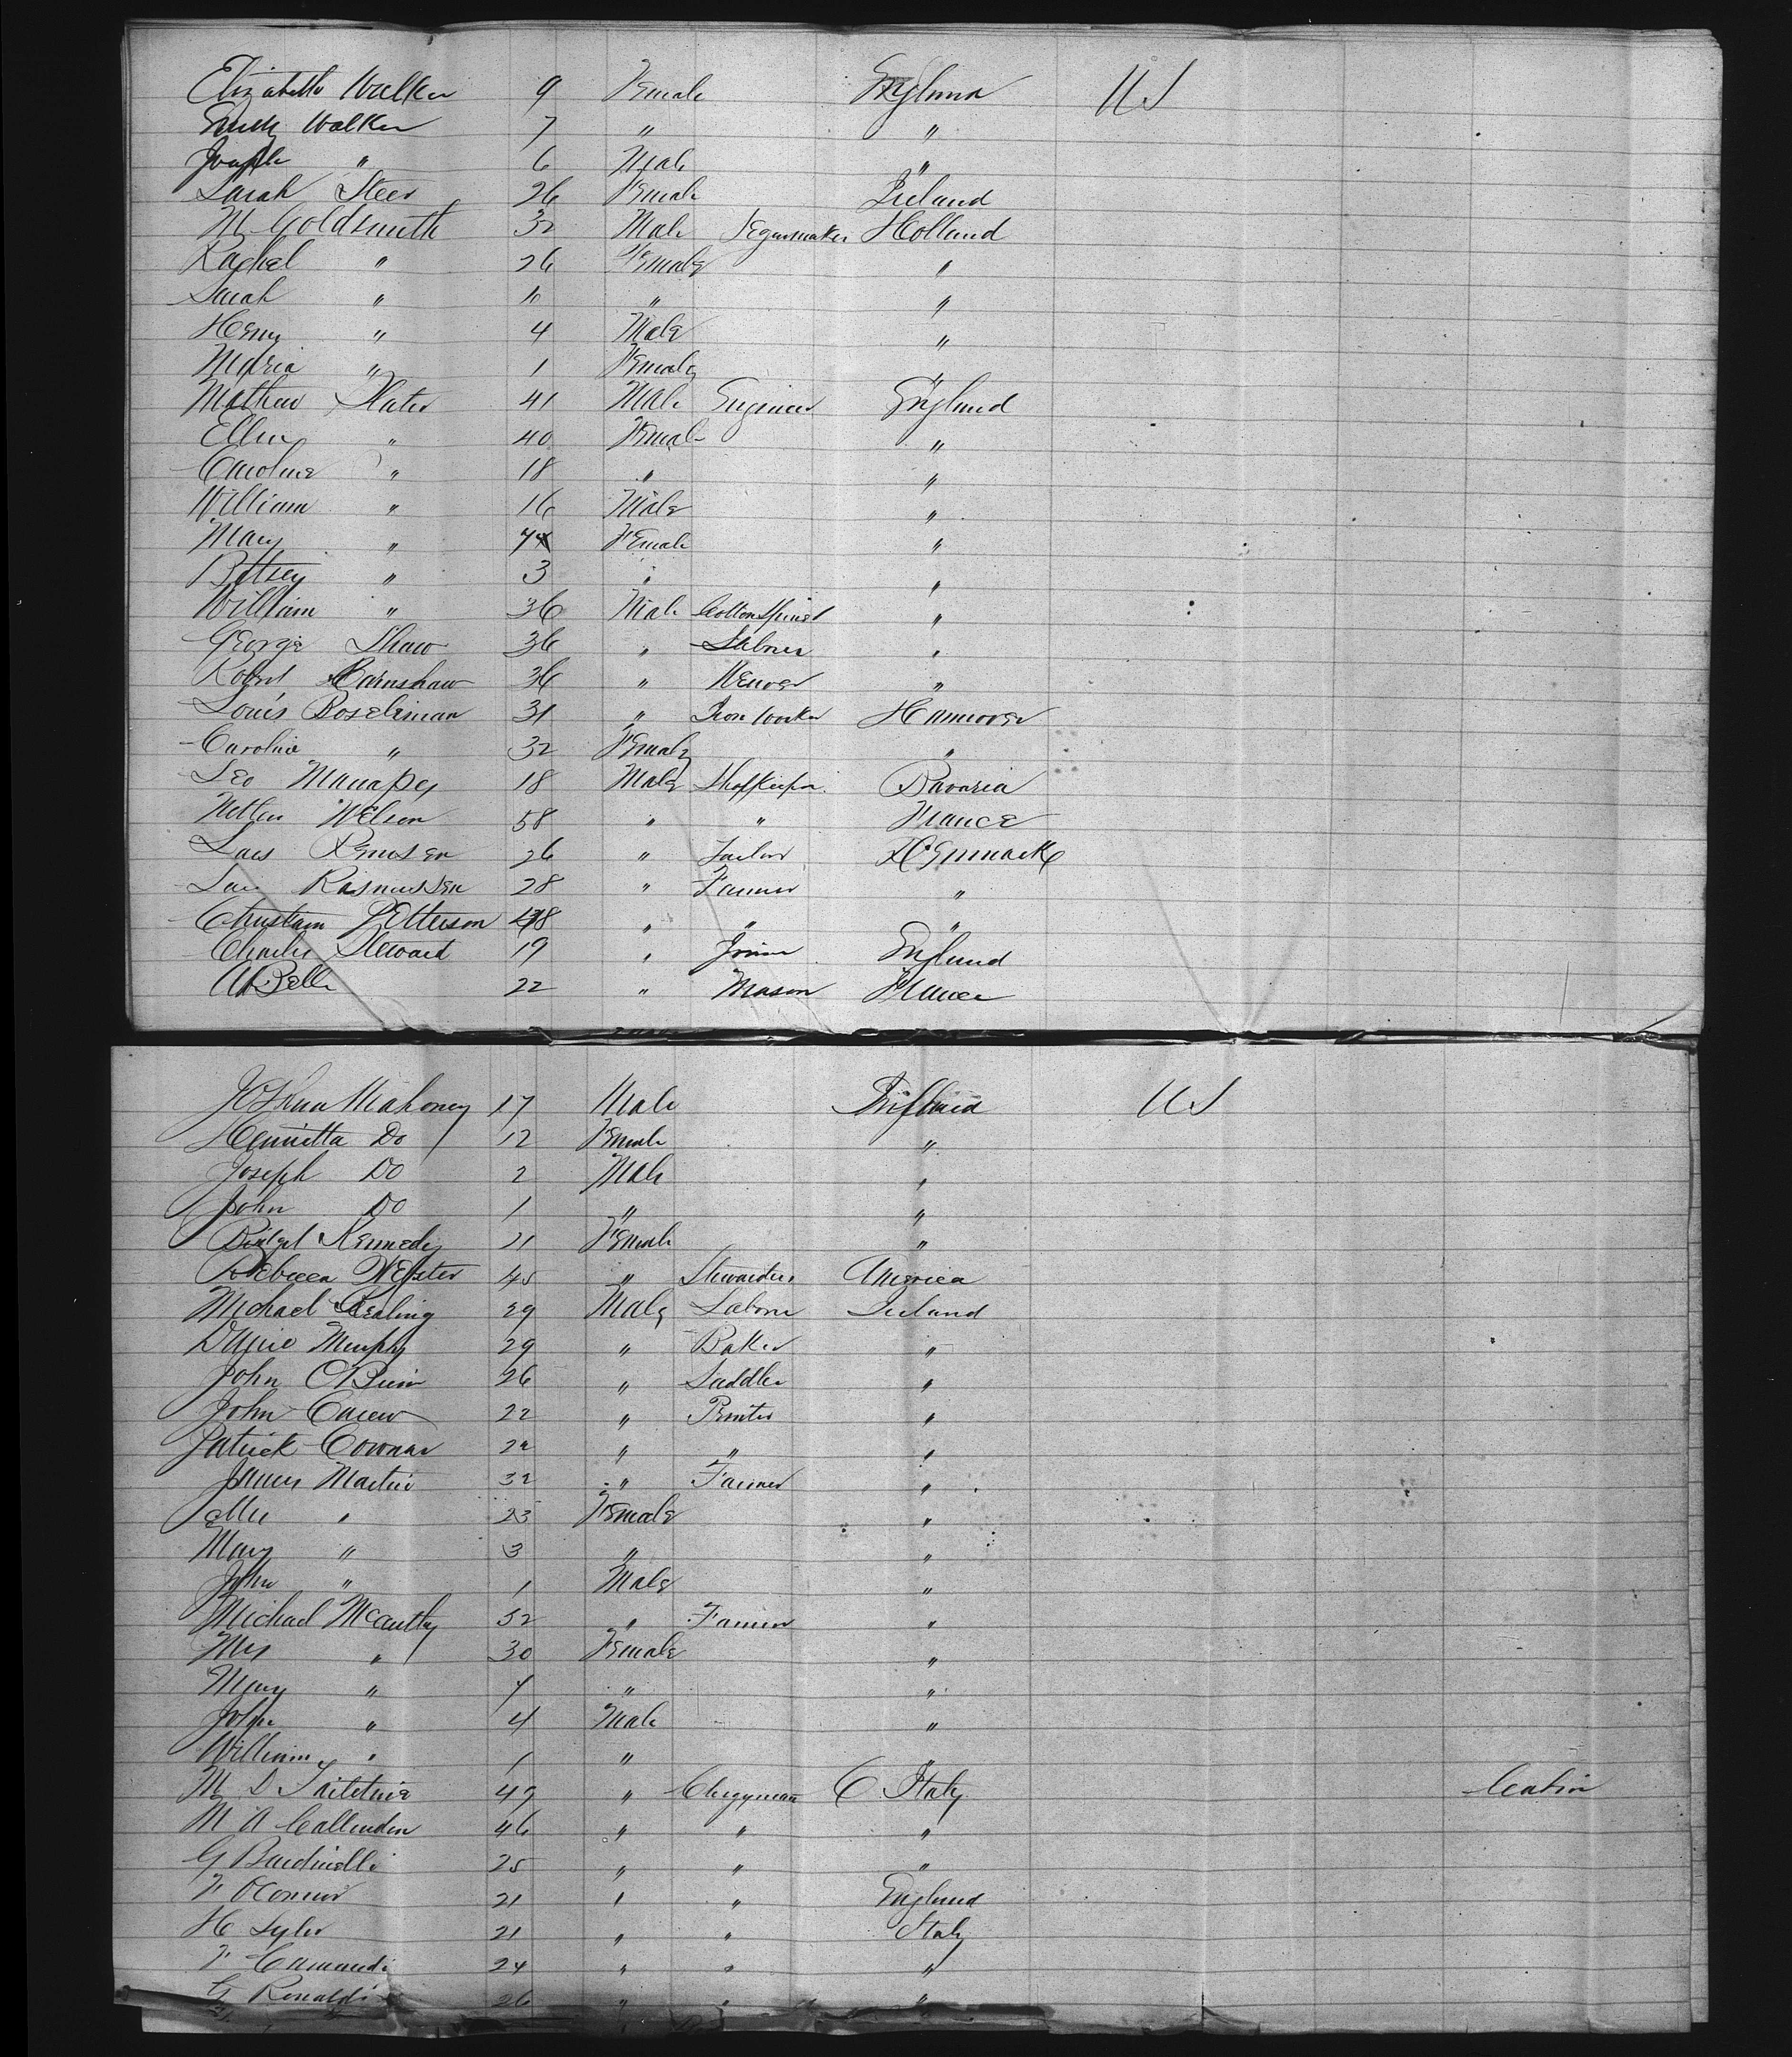 Elizabeth Walker 9 Female England US
Walker 7 " "
Joseph " 6 Male "
Sarah Steer 26 Female Ireland
M Goldsmith 32 Male Segarmaker Holland
Rachel " 26 Female "
Sarah " 10 " "
Henry " 4 Male "
Maria " 1 Female "
Mathew Slater 41 Male Engineer England
Ellen " 40 Female "
Caroline " 18 " "
William " 16 Male "
Mary " Female "
Bettsey " 3 " "
William " 36 Male Cotton "
George Shaw 36 " Laborer "
Robert Earnshaw 36 " Weaver "
Louis 31 " Iron Worker Hannover
Caroline " 32 Female "
Leo 18 Male Shopkeeper Bavaria
Welson 58 " " France
Lars 26 " Tailor Denmark
Rasmussen 28 " Farmer "
Christian Petterson " " "
Charles Steward 19 " Joiner England
22 " Mason France
Joshua Mahoney 17 Male US
Henrietta Do 12 Female "
Joseph Do 2 Male "
John Do 1 " "
Bridget Kennedy 21 Female "
Rebecca Webster 45 " Stewardess America
Michael 29 Male Laborer Ireland
Murphy 29 " Baker "
John OBrien 26 " Saddler "
John Carew 22 " Printer "
Patrick 22 " " "
James Martin 32 " Farmer "
Ellen " 23 Female "
Mary " 3 " "
John " 1 Male "
Michael McCarthy 32 " Farmer "
Mrs " 30 Female "
Mary " 7 " "
John " 4 Male "
William " 1 " "
M D 49 " Clergyman Italy Cabin
M A Callender 46 " " "
G 25 " " "
F OConnor 21 " " England
H 21 " " Italy
F 24 " " "
G Renaldi 26 " " "